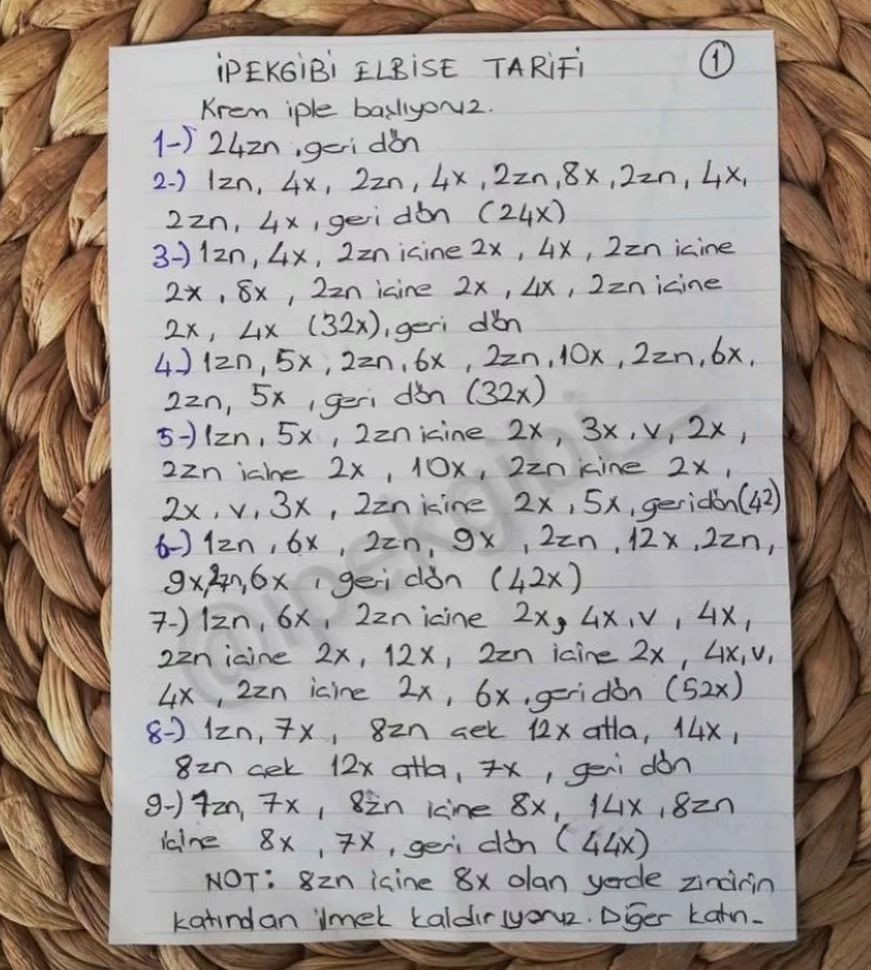 İPEKGİBİ ELBİSE TARİFİ ①
Krem iple başlıyoruz.
1-) 24zn, geri dön
2-) 1zn, 4x, 2zn, 4x, 2zn, 8x, 2zn, 4x,
2zn, 4x, geri dön (24x)
3-) 1zn, 4x, 2zn içine 2x, 4x, 2zn içine
2x, 8x, 2zn içine 2x, 4x, 2zn içine
2x, 4x (32x), geri dön
4-) 1zn, 5x, 2zn, 6x, 2zn, 10x, 2zn, 6x,
2zn, 5x, geri dön (32x)
5-) 1zn, 5x, 2zn içine 2x, 3x, v, 2x,
2zn içine 2x, 10x, 2zn içine 2x,
2x, v, 3x, 2zn içine 2x, 5x, geri dön (42)
6-) 1zn, 6x, 2zn, 9x, 2zn, 12x, 2zn,
9x, 2zn, 6x, geri dön (42x)
7-) 1zn, 6x, 2zn içine 2x, 4x, v, 4x,
2zn içine 2x, 12x, 2zn içine 2x, 4x, v,
4x, 2zn içine 2x, 6x, geri dön (52x)
8-) 1zn, 7x, 8zn çek 12x atla, 14x,
8zn çek 12x atla, 7x, geri dön
9-) 1zn, 7x, 8zn içine 8x, 14x, 8zn
içine 8x, 7x, geri dön (44x)
NOT: 8zn içine 8x olan yerde zincirin
katından ilmek kaldırıyoruz. Diğer katın-
@ipekgibi_